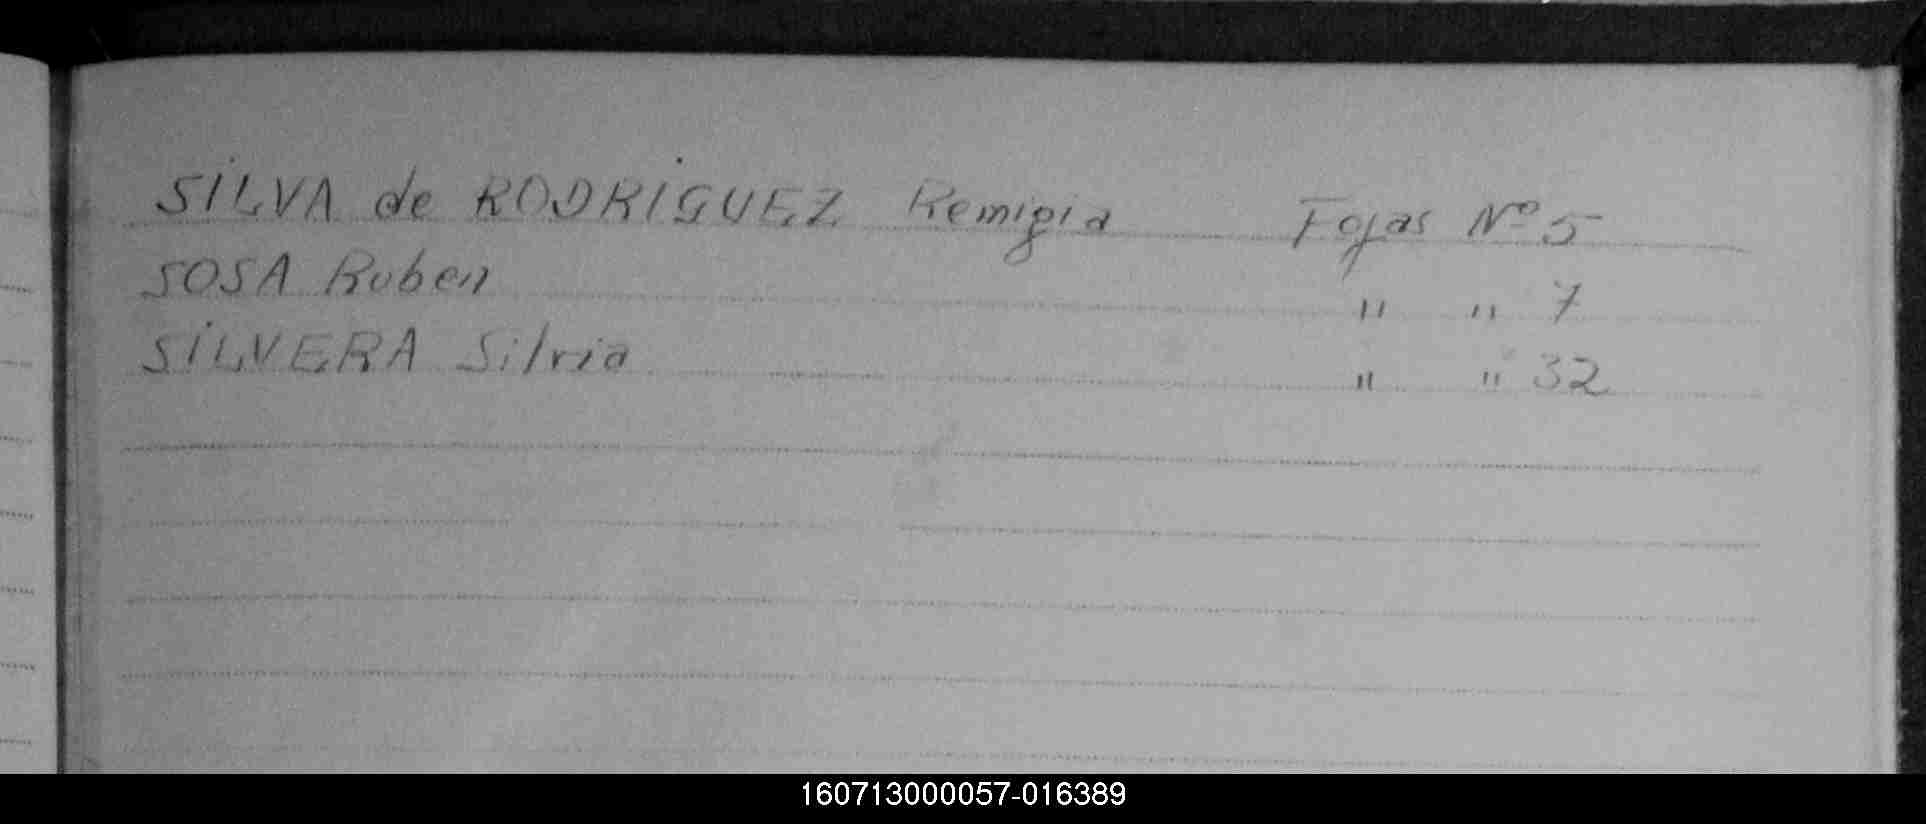 SILVA de RODRIGUEZ Remigia Fojas Nº 5
SOSA Ruben " " 7
SILVERA Silvia " " 32
160713000057-016389